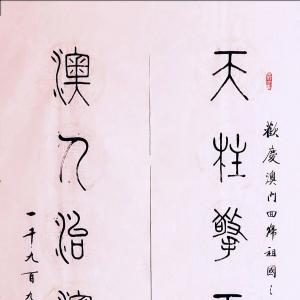 歡慶澳門回歸祖國之
天柱擎天
澳人治澳
一千九百九